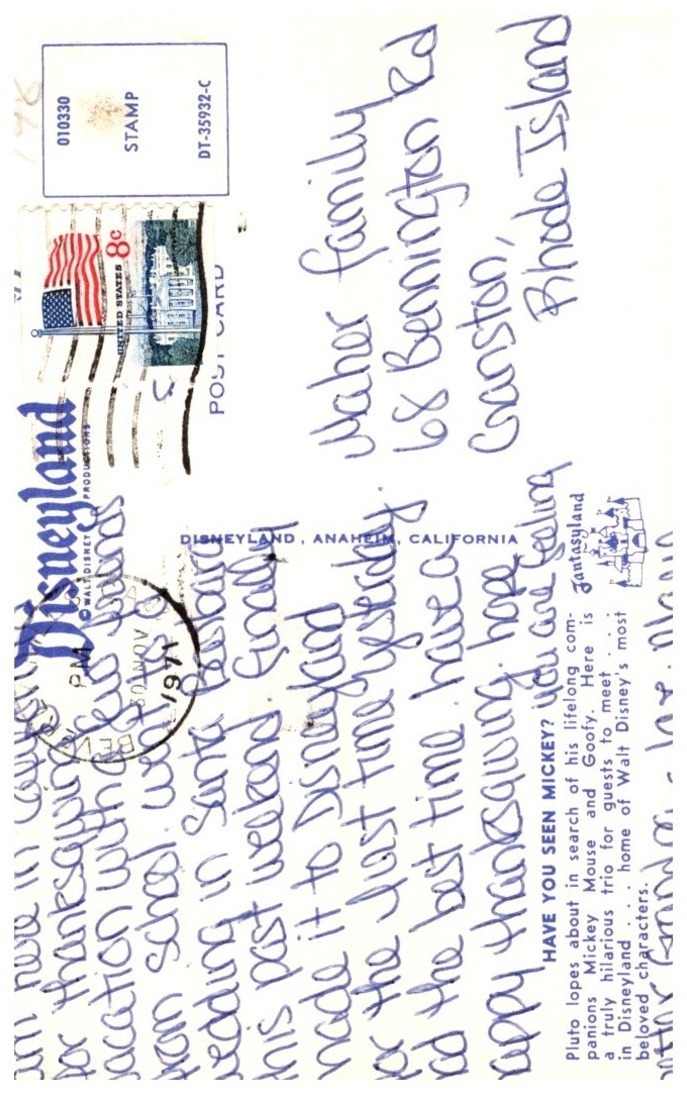 Disneyland
© WALT DISNEY PRODUCTIONS
am here in
for thanksgiving
vacation with a few friends
from school. went to a
wedding in Santa Barbara
this past weekend. finally
made it to Disneyland
for the first time yesterday.
had the best time. have a
happy thanksgiving. hope
you are feeling
better Grandpa - love, Mary
HAVE YOU SEEN MICKEY?
Pluto lopes about in search of his lifelong com-
panions Mickey Mouse and Goofy. Here is
a truly hilarious trio for guests to meet . . .
in Disneyland . . . home of Walt Disney's most
beloved characters.
Fantasyland
DISNEYLAND, ANAHEIM, CALIFORNIA
POST CARD
010330
STAMP
DT-35932-C
UNITED STATES 8c
PM
30 NOV
1971
Maher family
68 Bennington Rd
Cranston,
Rhode Island